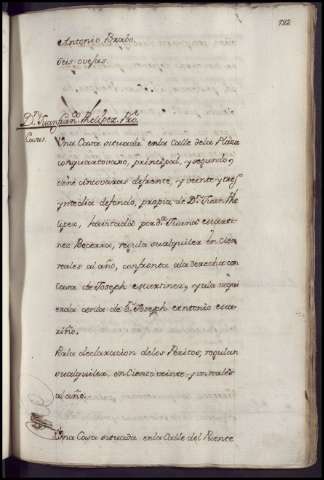 782
Antonio Bravo
Seis ovejas.
Dn. Juan Franco. Phelipez. Pro.
Casas.
Una Casa situada en la Calle de la Plaza
con quarto vaxo, principal, y segundo,
tiene cinco varas de frente, y veinte y tres
y media de fondo, propia de Dn. Juan Phe
lipez, havitada por Dª Juana Marti
nez Becerra, regula su alquiler en Cien
reales al año, confronta a la derecha con
Casa de Joseph Martinez, y a la izqui
erda con la de Dn. Joseph Antonio Ma
riño.
Por la declaracion de los Peritos, regulan
su alquiler, en Ciento veinte y un reales
al año.
Una Casa situada en la Calle del Puente